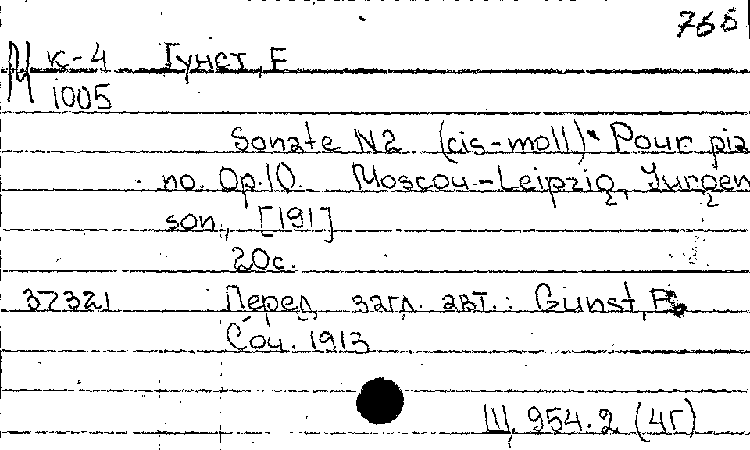 766
М К-4 Гунст, Е
1005
Sonate N2 (cis-moll). Pour pia
no. Op.10. Moscou-Leipzig, Jurgen
son, [191]
20с.
37321 Перед загл. авт.: Gunst, E.
Соч. 1913
Ш, 954.2 (4Г)